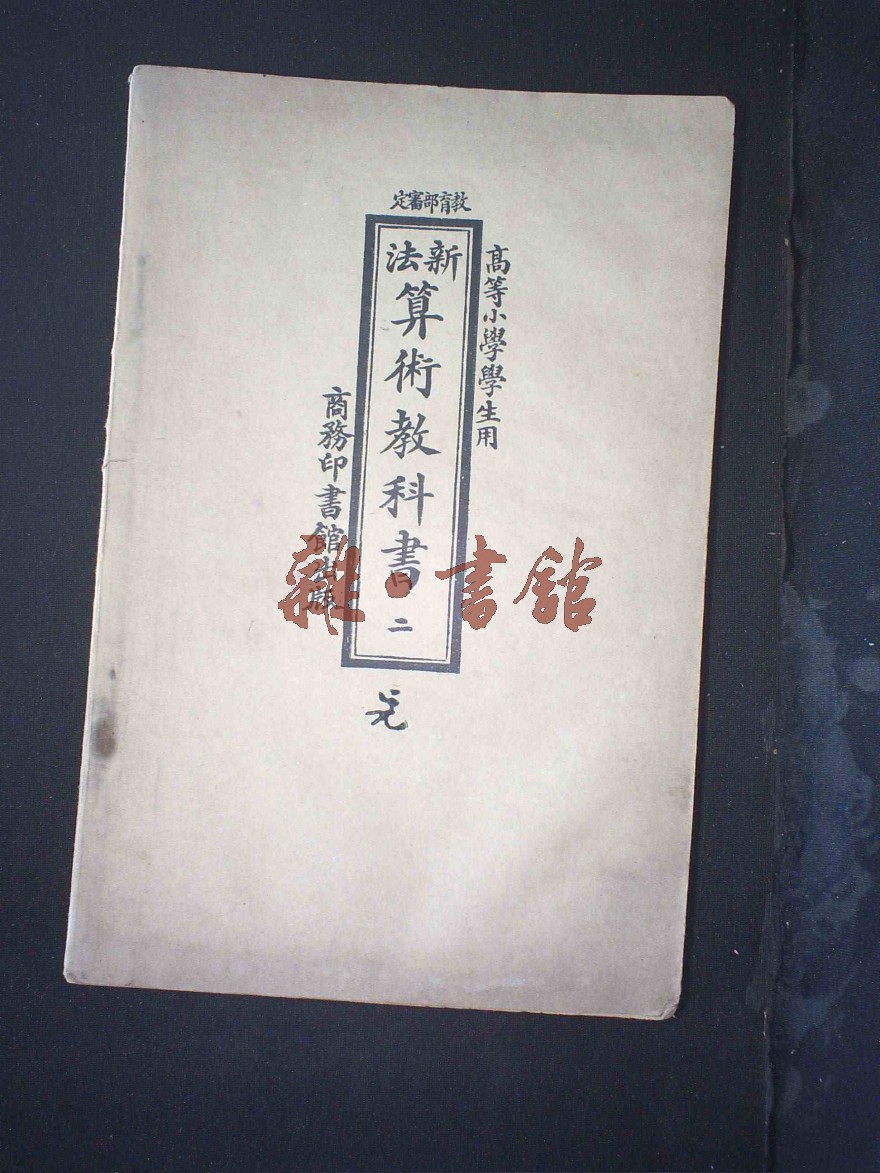 教育部審定
高等小學學生用
新法
算術教科書 二
商務印書館出版
雜·書館